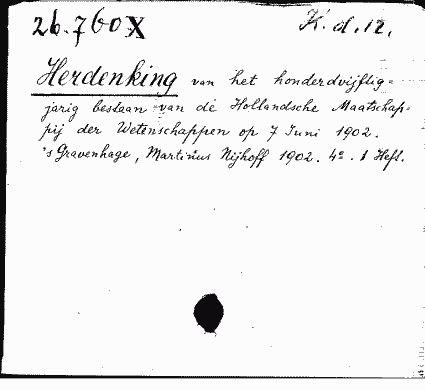 26.760 X K.d.12.
Herdenking van het honderdvijftig-
jarig bestaan van de Hollandsche Maatschap-
pij der Wetenschappen op 7 Juni 1902.
's Gravenhage, Martinus Nijhoff 1902. 4º. 1 Heft.